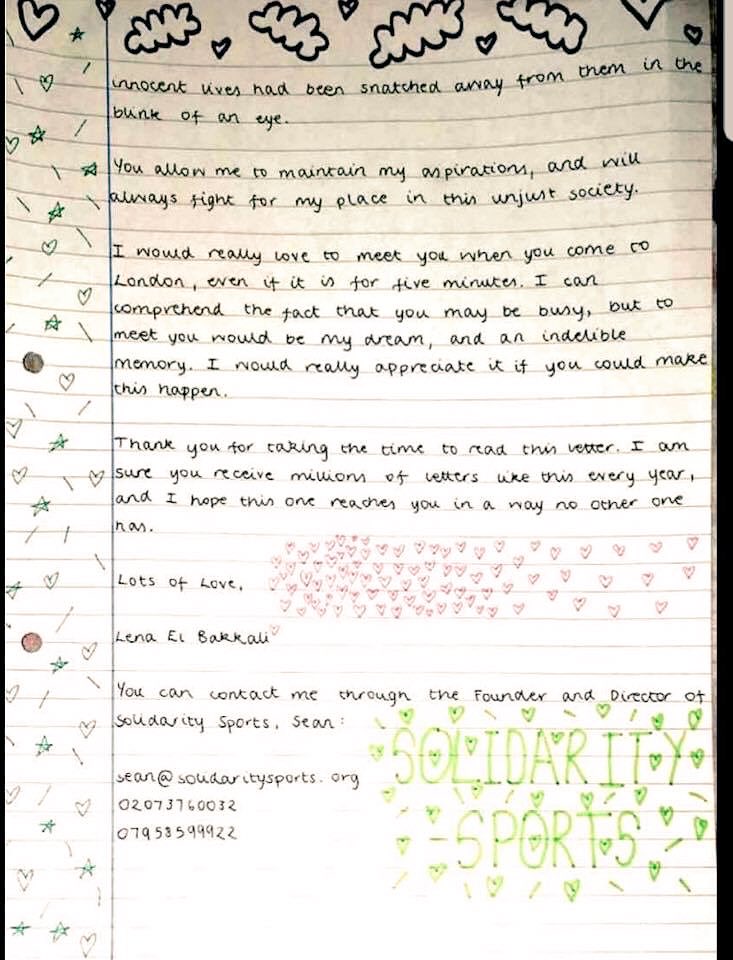 innocent lives had been snatched away from them in the
blink of an eye.
You allow me to maintain my aspirations, and will
always fight for my place in this unjust society.
I would really love to meet you when you come to
London, even if it is for five minutes. I can
comprehend the fact that you may be busy, but to
meet you would be my dream, and an indelible
memory. I would really appreciate it if you could make
this happen.
Thank you for taking the time to read this letter. I am
sure you receive millions of letters like this every year,
and I hope this one reaches you in a way no other one
has.
Lots of Love,
Lena El Bakkali
You can contact me through the Founder and Director of
Solidarity Sports, Sean:
sean@solidaritysports.org
02073760032
07958599922
SOLIDARITY
SPORTS